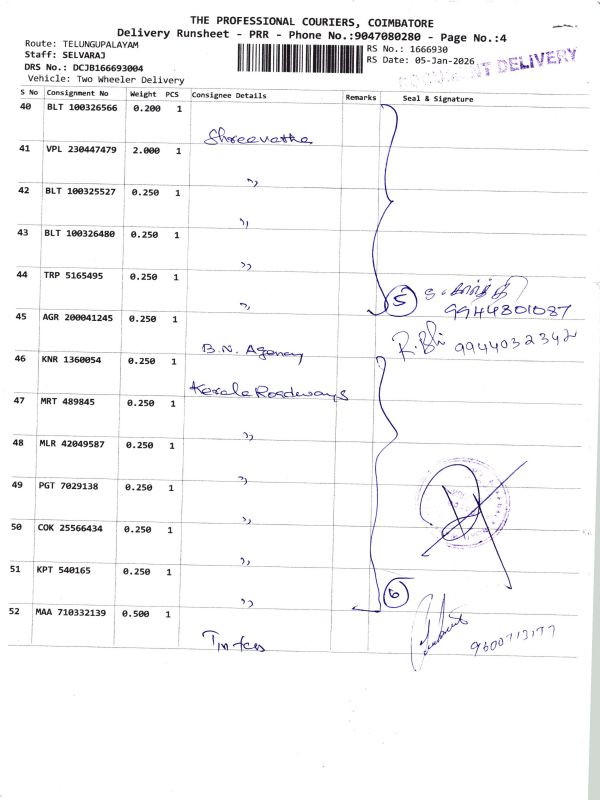 THE PROFESSIONAL COURIERS, COIMBATORE
Delivery Runsheet - PRR - Phone No.:9047080280 - Page No.:4
Route: TELUNGUPALAYAM
Staff: SELVARAJ
DRS No.: DCJB166693004
Vehicle: Two Wheeler Delivery
RS No.: 1666930
RS Date: 05-Jan-2026
DELIVERY
S No Consignment No Weight PCS Consignee Details Remarks Seal & Signature
40 BLT 100326566 0.200 1
41 VPL 230447479 2.000 1
,,
42 BLT 100325527 0.250 1
,,
43 BLT 100326480 0.250 1
,,
44 TRP 5165495 0.250 1
,,
5
9944801087
45 AGR 200041245 0.250 1
B.N. Agency
9944032342
46 KNR 1360054 0.250 1
Kerala Roadways
47 MRT 489845 0.250 1
,,
48 MLR 42049587 0.250 1
,,
49 PGT 7029138 0.250 1
,,
50 COK 25566434 0.250 1
,,
51 KPT 540165 0.250 1
,,
6
52 MAA 710332139 0.500 1
9600713177